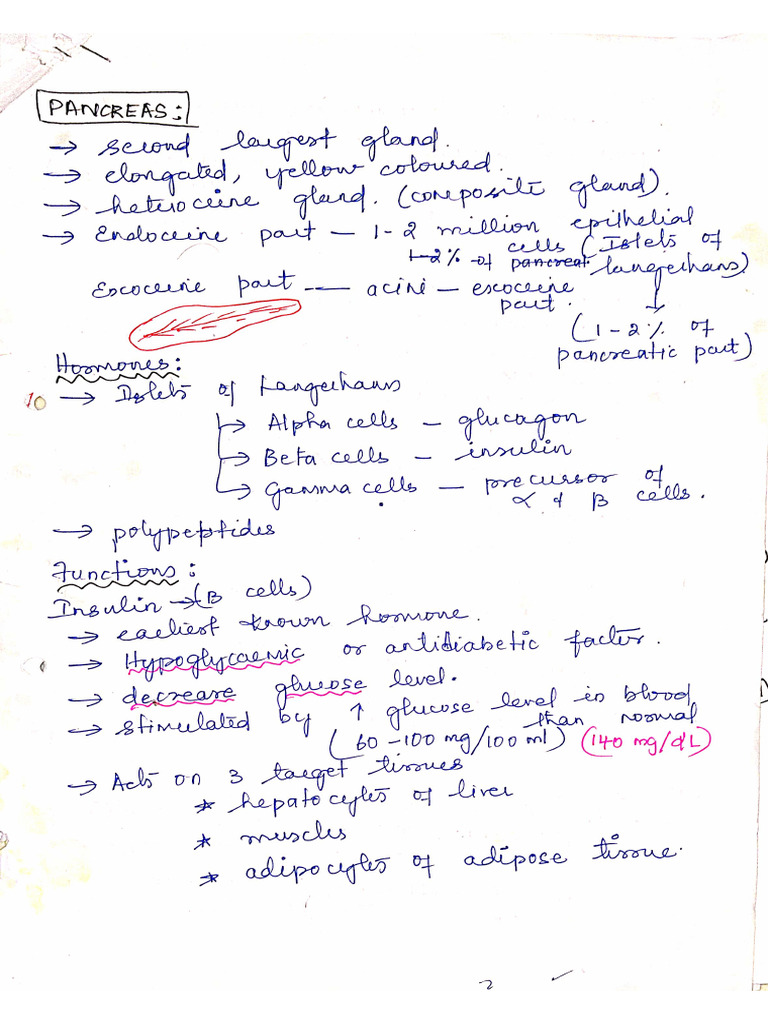 PANCREAS:
→ second largest gland.
→ elongated, yellow coloured.
→ heterocrine gland. (composite gland).
→ Endocrine part – 1-2 million epithelial
cells (Islets of
1-2% of pancreat. Langerhans)
Exocrine part --- acini – exocrine
part.
↓
(1-2% of
pancreatic part)
Hormones:
10 → Islets of Langerhans
→ Alpha cells – glucagon
→ Beta cells – insulin
→ Gamma cells – precursor of
α & β cells.
→ polypeptides
Functions:
Insulin → (B cells)
→ earliest known hormone.
→ Hypoglycaemic or antidiabetic factor.
→ decrease glucose level.
→ stimulated by ↑ glucose level in blood
than normal
(60-100 mg/100 ml) (140 mg/dL)
→ Acts on 3 target tissues
* hepatocytes of liver
* muscles
* adipocytes of adipose tissue.